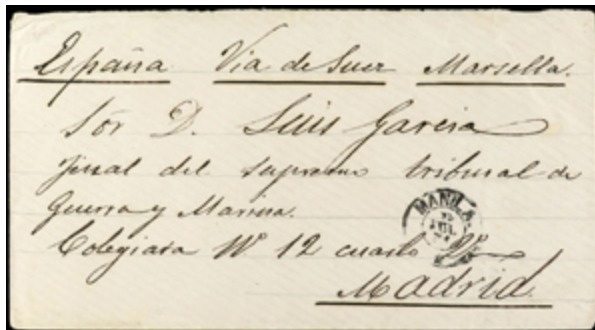 España Via de Suez Marsella.
Sor D. Luis Garcia
fiscal del supremo tribunal de
Guerra y Marina.
Colegiata Nº 12 cuarto 2º
Madrid.
MANILA
JUL